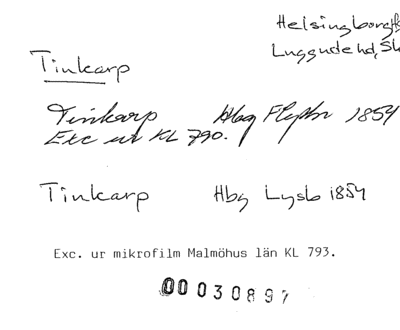 Helsingborgs
Luggude hd, Sk
Tinkarp
Tinkarp Hbg 1854
Exc ur KL 790.
Tinkarp Hbg Lysb 1854
Exc. ur mikrofilm Malmöhus län KL 793.
00030897